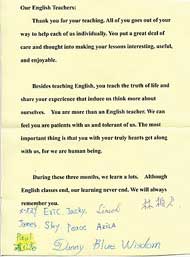 Our English Teachers:
Thank you for your teaching. All of you goes out of your
way to help each of us individually. You put a great deal of
care and thought into making your lessons interesting, useful,
and enjoyable.
Besides teaching English, you teach the truth of life and
share your experience that induce us think more about
ourselves. You are more than an English teacher. We can
feel you are patients with us and tolerant of us. The most
important thing is that you with your truly hearts get along
with us, for we are human being.
During these three months, we learn a lots. Although
English classes end, our learning never end. We will always
remember you.
Eric Jacky
James Sky Peace
Paul
Dunny Blue Wisdom